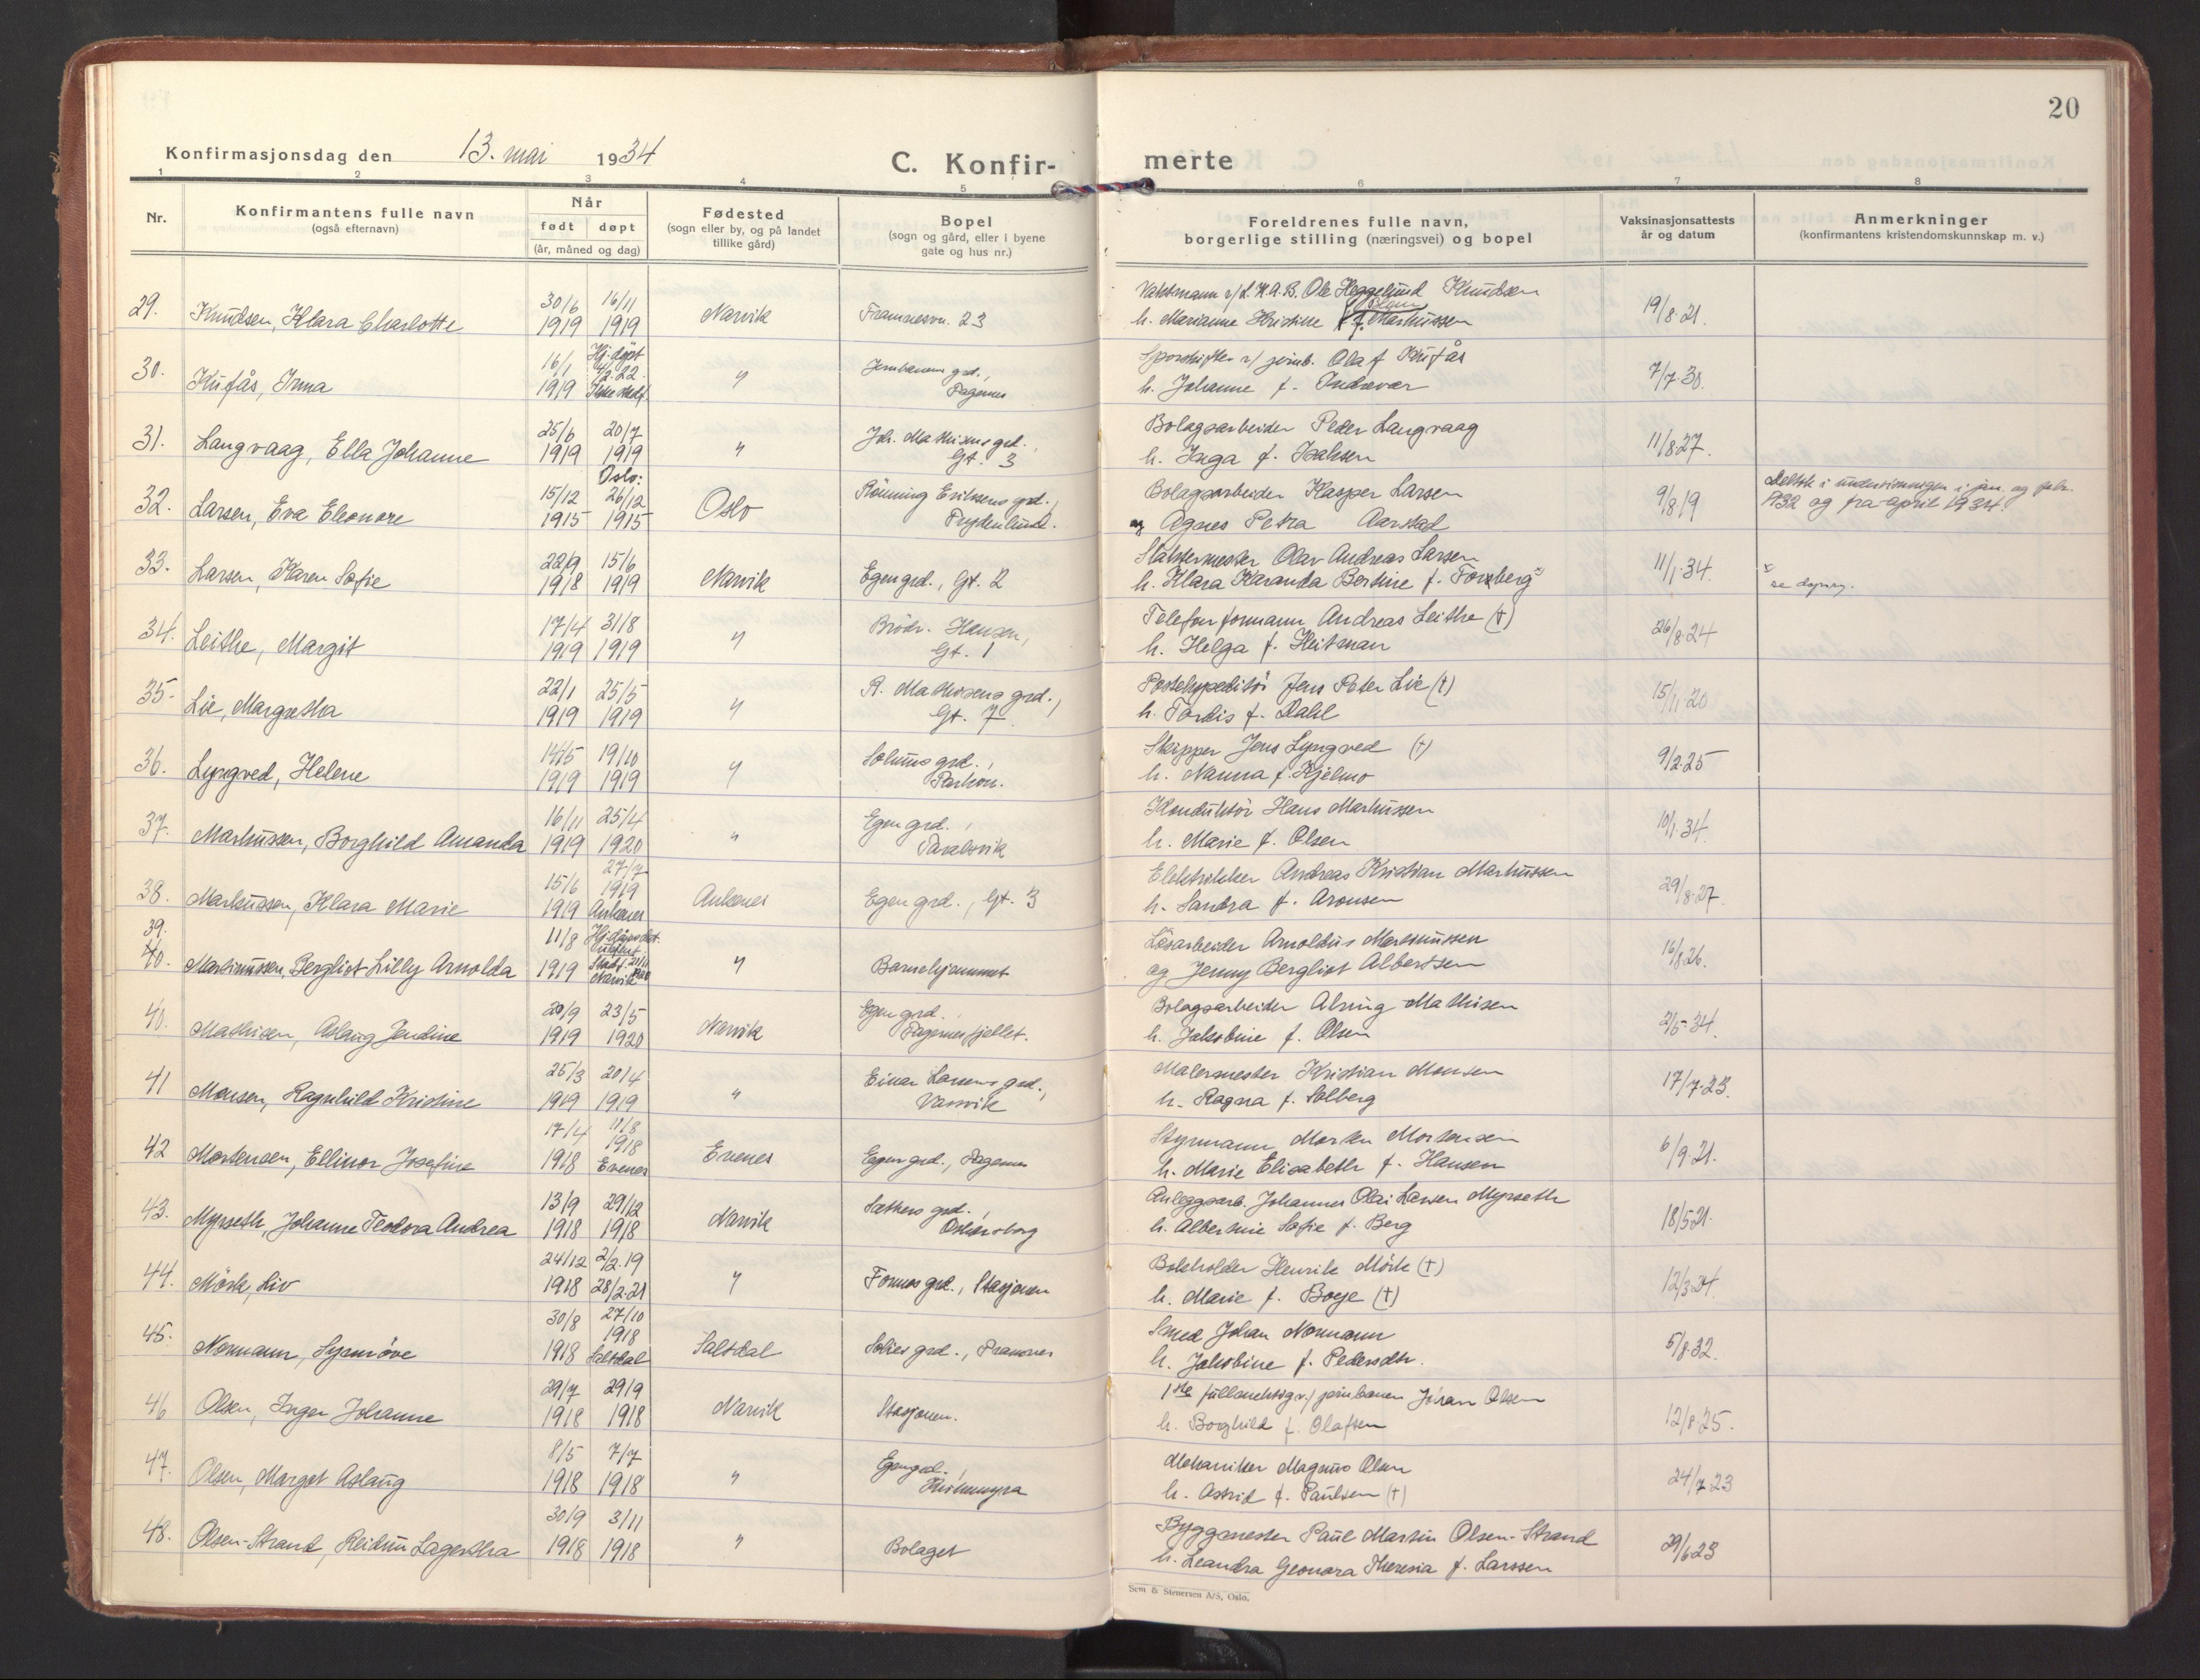 20
Konfirmasjonsdag den 13. mai 1934
C. Konfir-
merte
1 2 3 4 5 6 7 8
Nr.
Konfirmantens fulle navn
(også efternavn)
Når
født døpt
(år, måned og dag)
Fødested
(sogn eller by, og på landet
tillike gård)
Bopel
(sogn og gård, eller i byene
gate og hus nr.)
Foreldrenes fulle navn,
borgerlige stilling (næringsvei) og bopel
Vaksinasjonsattests
år og datum
Anmerkninger
(konfirmantens kristendomskunnskap m. v.)
29. Knudsen, Klara Charlotte
30/6 16/11
1919 1919
Narvik
Framnesvn. 23
Vaktmann v/ L.K.A.B. Ole Heggelund Knudsen
h. Marianne Kristine f. Markussen
19/8.21.
30. Kufås, Irma
16/1 Hj.døpt
4/2.22.
1919
"
Jernbanens grd.,
Fagernes
Sporskifter v/ jernb. Olaf Kufås
h. Johanne f. Indrevær
7/7.30.
31. Langvaag, Ella Johanne
25/6 20/7
1919 1919
"
Joh. Mathisens grd.,
Gt. 3
Bolagsarbeider Peder Langvaag
h. Inga f. Isaksen
11/8.27.
32. Larsen, Eva Eleonore
Oslo:
15/12 26/12
1915 1915
Oslo
Rönning Eriksens grd.,
Frydenlund.
Bolagsarbeider Kasper Larsen
og Agnes Petra Aarstad
9/8 19
Deltok i undervisningen i jan. og febr.
1932 og fra april 1934.
33. Larsen, Karen Sofie
22/9 15/6
1918 1919
Narvik
Egen grd., Gt. 2
Slaktermester Olav Andreas Larsen
h. Klara Karanda Bertine f. Forsberg x)
11/1.34.
x se dåpsreg.
34. Leithe, Margit
17/4 31/8
1919 1919
"
Brödr. Hansen,
Gt. 1
Telefonformann Andreas Leithe (†)
h. Helga f. Heitman
26/8.24
35. Lie, Margretha
22/1 25/5
1919 1919
"
R. Mathisens grd.,
Gt. 7.
Postekspeditör Jens Peter Lie (†)
h. Tordis f. Dahl
15/11.20
36. Lyngved, Helene
14/5 19/10
1919 1919
"
Solums grd.,
Parkvn.
Skipper Jens Lyngved (†)
h. Nanna f. Kjelmo
9/2.25
37. Markussen, Borghild Amanda
16/11 25/4
1919 1920
"
Egen grd.,
Taraldsvik
Konduktör Hans Markussen
h. Marie f. Olsen
10/1.34.
38. Markussen, Klara Marie
27/7
15/6 1919
1919 Ankenes
Ankenes
Egen grd., Gt. 3
Elektrikker Andreas Kristian Markussen
h. Sandra f. Aronsen
29/8.27.
39.
40. Martinussen, Bergliot Lilly Arnolda
11/8 Hj.dåps
1919 Narvik
"
Barnehjemmet
Lösarbeider Arnoldus Martinussen
og Jenny Bergliot Albertsen
16/8.26.
40. Mathisen, Aslaug Jendine
20/9 23/5
1919 1920
Narvik
Egen grd.,
Fagernesfjellet.
Bolagsarbeider Alming Mathisen
h. Jakobine f. Olsen
2/5.34.
41 Monsen, Ragnhild Kristine
25/3 20/4
1919 1919
"
Einar Larsens grd.,
Vassvik
Malermester Kristian Monsen
h. Ragna f. Solberg
17/7.23.
42 Mortensen, Ellinor Josefine
17/4 11/8
1918
1918 Evenes
Evenes
Egen grd., Fagernes
Styrmann Morten Mortensen
h. Marie Elisabeth f. Hansen
6/9.21.
43. Myrseth, Johanne Teodora Andrea
13/9 29/12
1918 1918
Narvik
Sæthers grd.,
Oskarsborg
Anleggsarb. Johannes Olai Larsen Myrseth
h. Albertine Sofie f. Berg
18/5 21.
44. Mörk, Liv
24/12 2/2.19
1918 28/2.21
"
Fornes grd., Stasjonen
Bokholder Henrik Mörk (†)
h. Marie f. Boye (†)
12/3.24.
45. Normann, Synnöve
30/8 27/10
1918
1918 Saltdal
Saltdal
Solies grd., Framnes
Smed Johan Normann
h. Jakobine f. Pedersdtr.
5/8.32.
46 Olsen, Inger Johanne
29/7 29/9
1918 1918
Narvik
Stasjonen.
1ste fullmektig v/ jernbanen Jöran Olsen
h. Borghild f. Olafsen
12/8.25.
47. Olsen, Margot Aslaug
8/5 7/7
1918 1918
"
Egen grd.,
Mekaniker Magnus Olsen
h. Astrid f. Paulsen (†)
24/7.23
48. Olsen-Strand, Reidun Lagertha
30/9 3/11
1918 1918
"
Bolaget
Byggmester Paul Martin Olsen-Strand
h. Leandra Geonora Theresia f. Larssen
29/6 23
Sem & Stenersen A/S, Oslo.